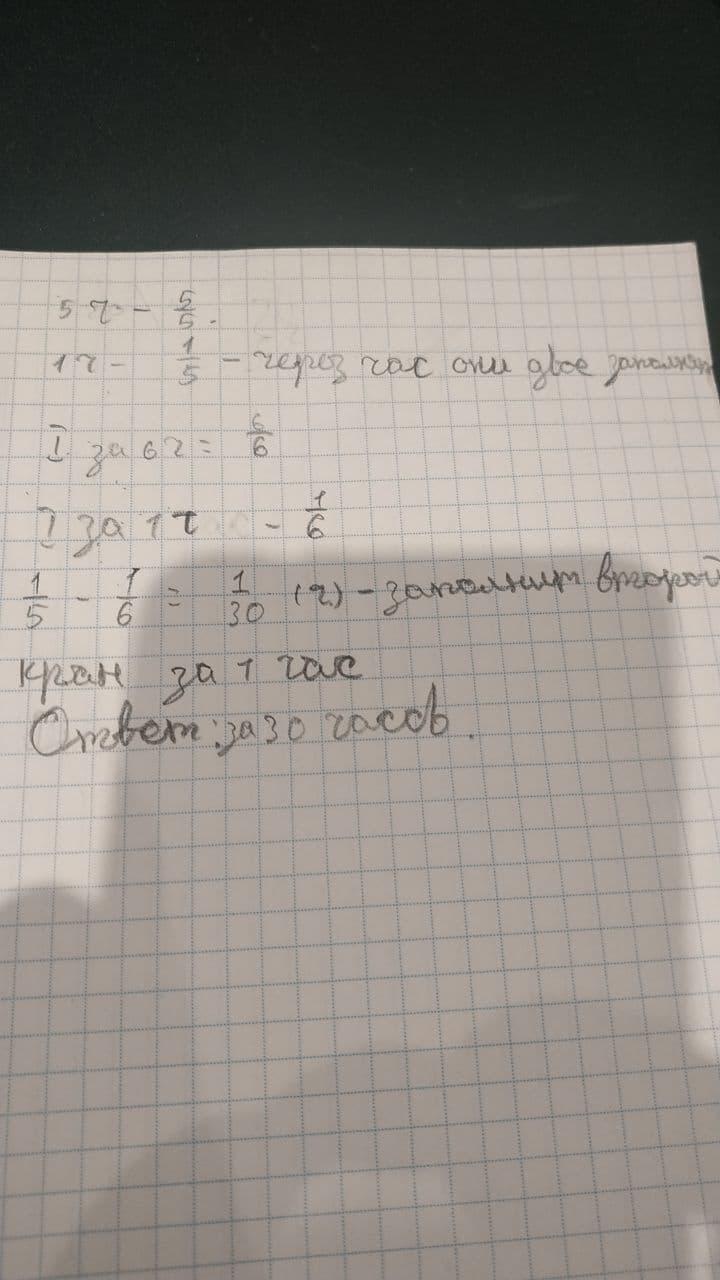 5 ч - 5/5.
1ч - 1/5 - через час они двое заполнят
I за 6 ч = 6/6
I за 1 ч - 1/6
1/5 - 1/6 = 1/30 (ч) - заполнит второй
кран за 1 час
Ответ: за 30 часов.